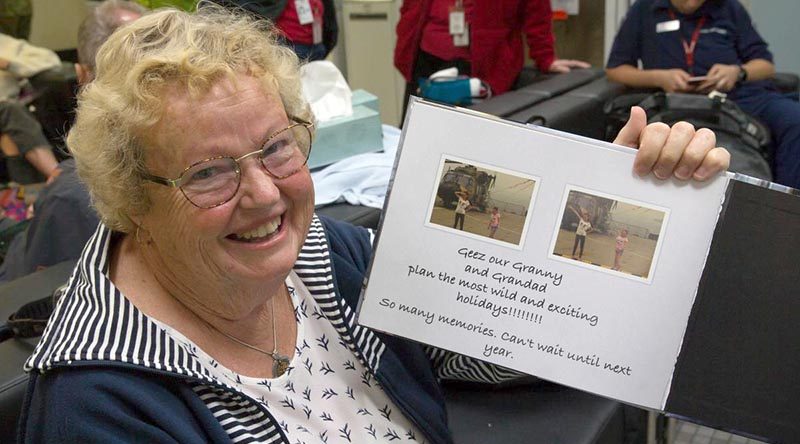 Geez our Granny
and Grandad
plan the most wild and exciting
holidays!!!!!!!!
So many memories. Can't wait until next
year.